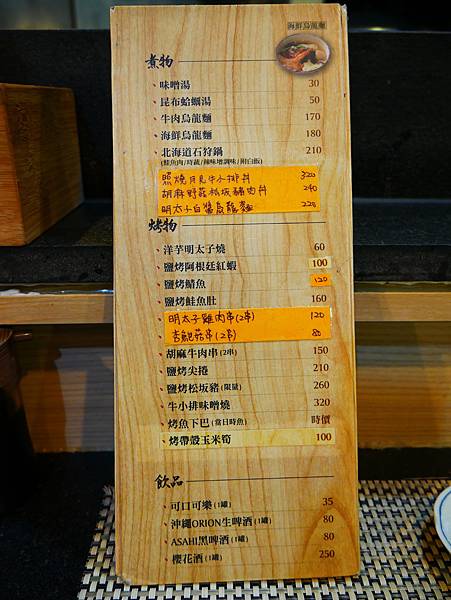 海鮮烏龍麵
煮物
味噌湯 30
昆布蛤蠣湯 50
牛肉烏龍麵 170
海鮮烏龍麵 180
北海道石狩鍋 210
(鮭魚肉/時蔬/辣味增調味/附白飯)
照燒月見牛小排丼 320
胡麻野菇松坂豬肉丼 240
明太子白醬烏龍麵 220
烤物
洋芋明太子燒 60
鹽烤阿根廷紅蝦 100
鹽烤鯖魚 120
鹽烤鮭魚肚 160
明太子雞肉串(2串) 120
杏鮑菇串(2串) 80
胡麻牛肉串(2串) 150
鹽烤尖捲 210
鹽烤松坂豬(限量) 260
牛小排味噌燒 320
烤魚下巴(當日時魚) 時價
烤帶殼玉米筍 100
飲品
可口可樂(1罐) 35
沖繩ORION生啤酒(1罐) 80
ASAHI黑啤酒(1罐) 80
櫻花酒(1罐) 250